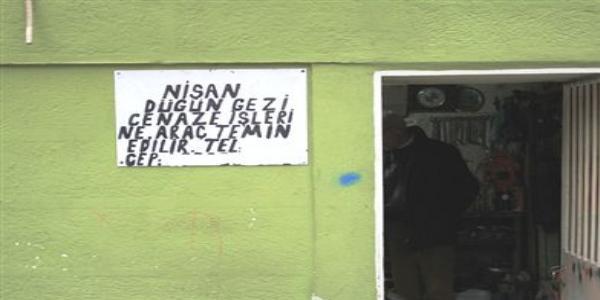 NİŞAN
DÜĞÜN GEZİ
CENAZE İŞLERİ
NE ARAÇ TEMİN
EDİLİR. TEL:
CEP: